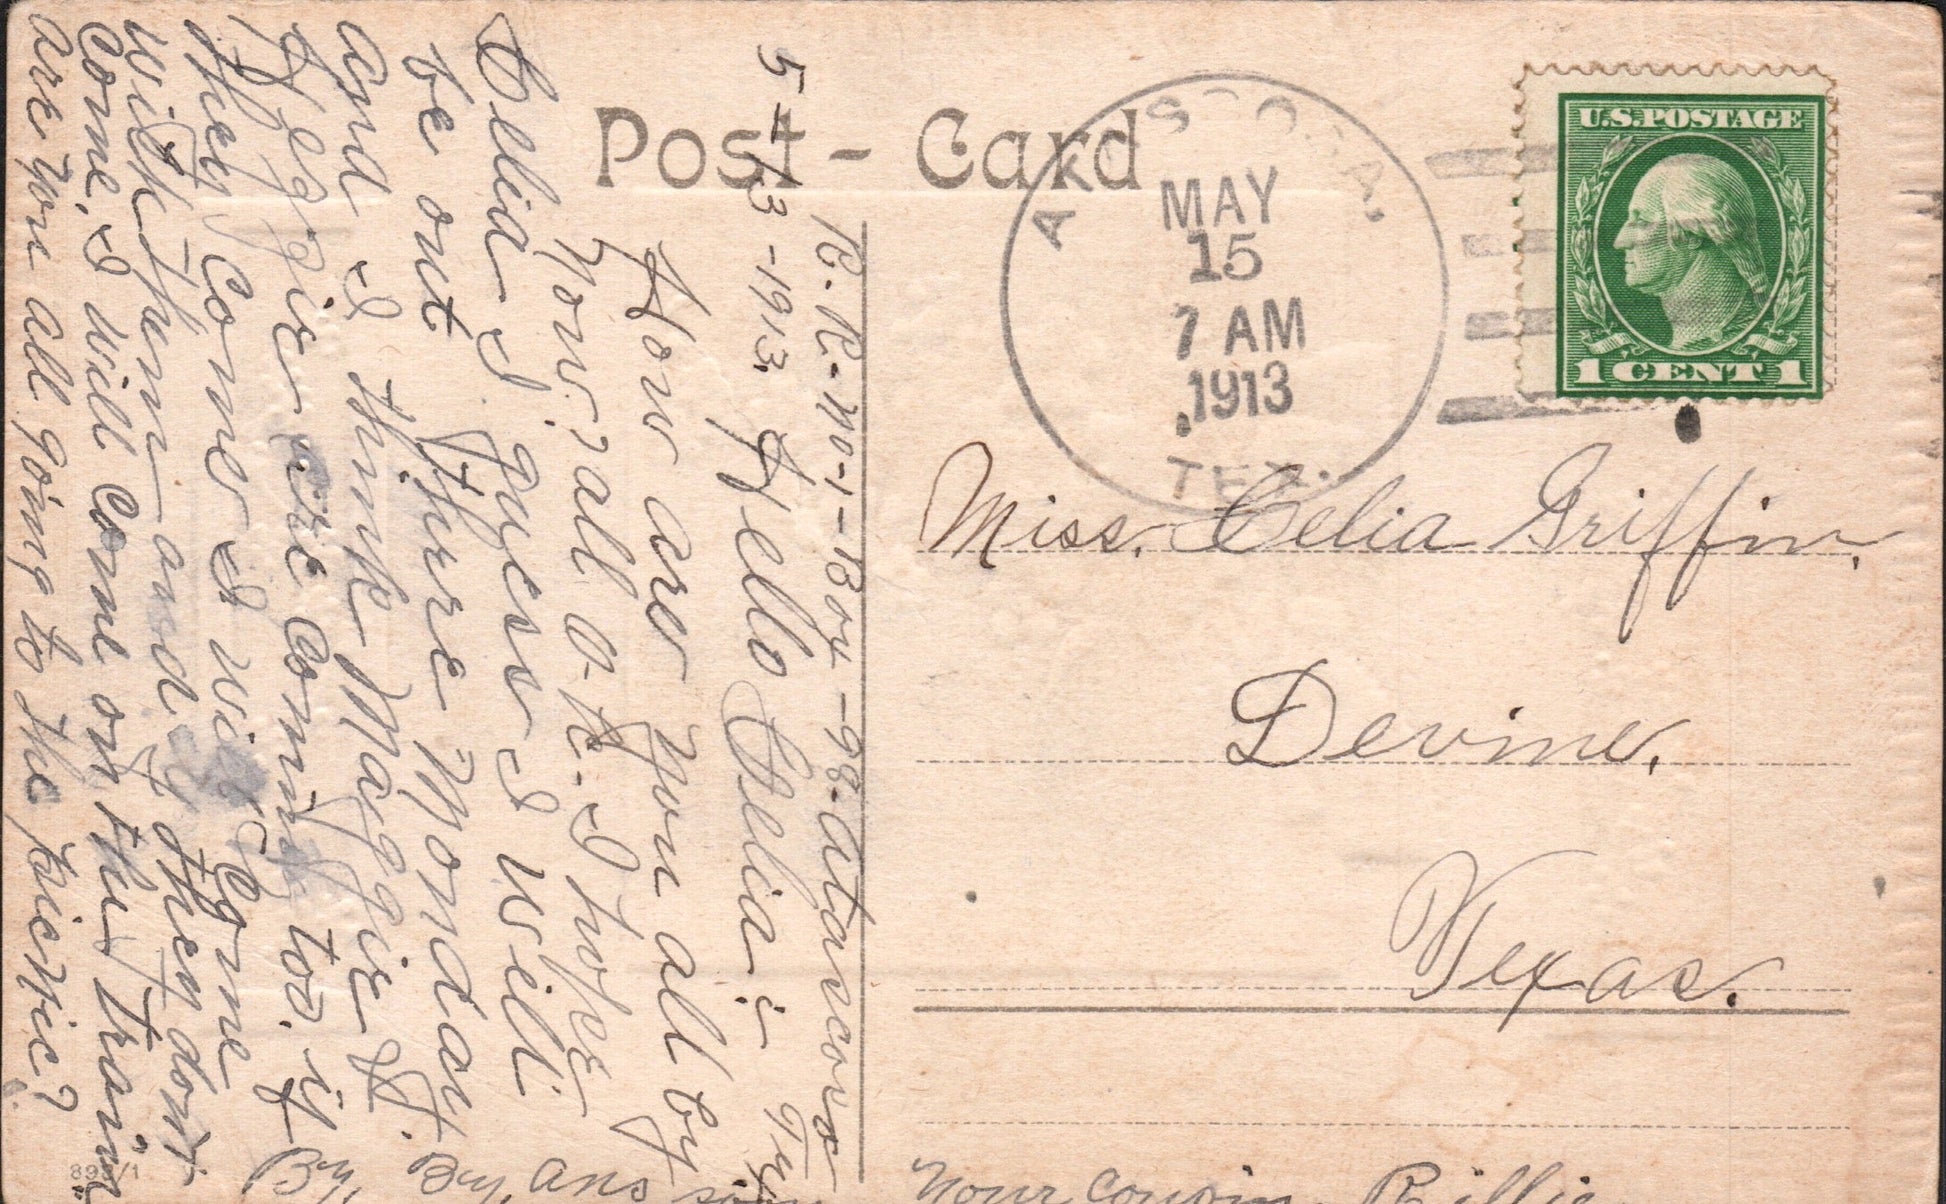 Post-Card
ATASCOSA,
MAY
15
7 AM
1913
TEX.
U.S. POSTAGE
1 CENT 1
Miss. Celia Griffin,
Devine,
Texas.
R. R. no-1-Box-98-Atascosa
Tex
5-13-1913. Hello Cellia:-
How are you all by
now? all O-K-I hope
Cellia I guess I will
be out there Monday.
and I think Maggie &
are coming too. if
they comes I will come
with them and if they dont
come, I will come on the train
are you all going to the picnic?
By, By, ans soon
Your cousin Billie
893/1